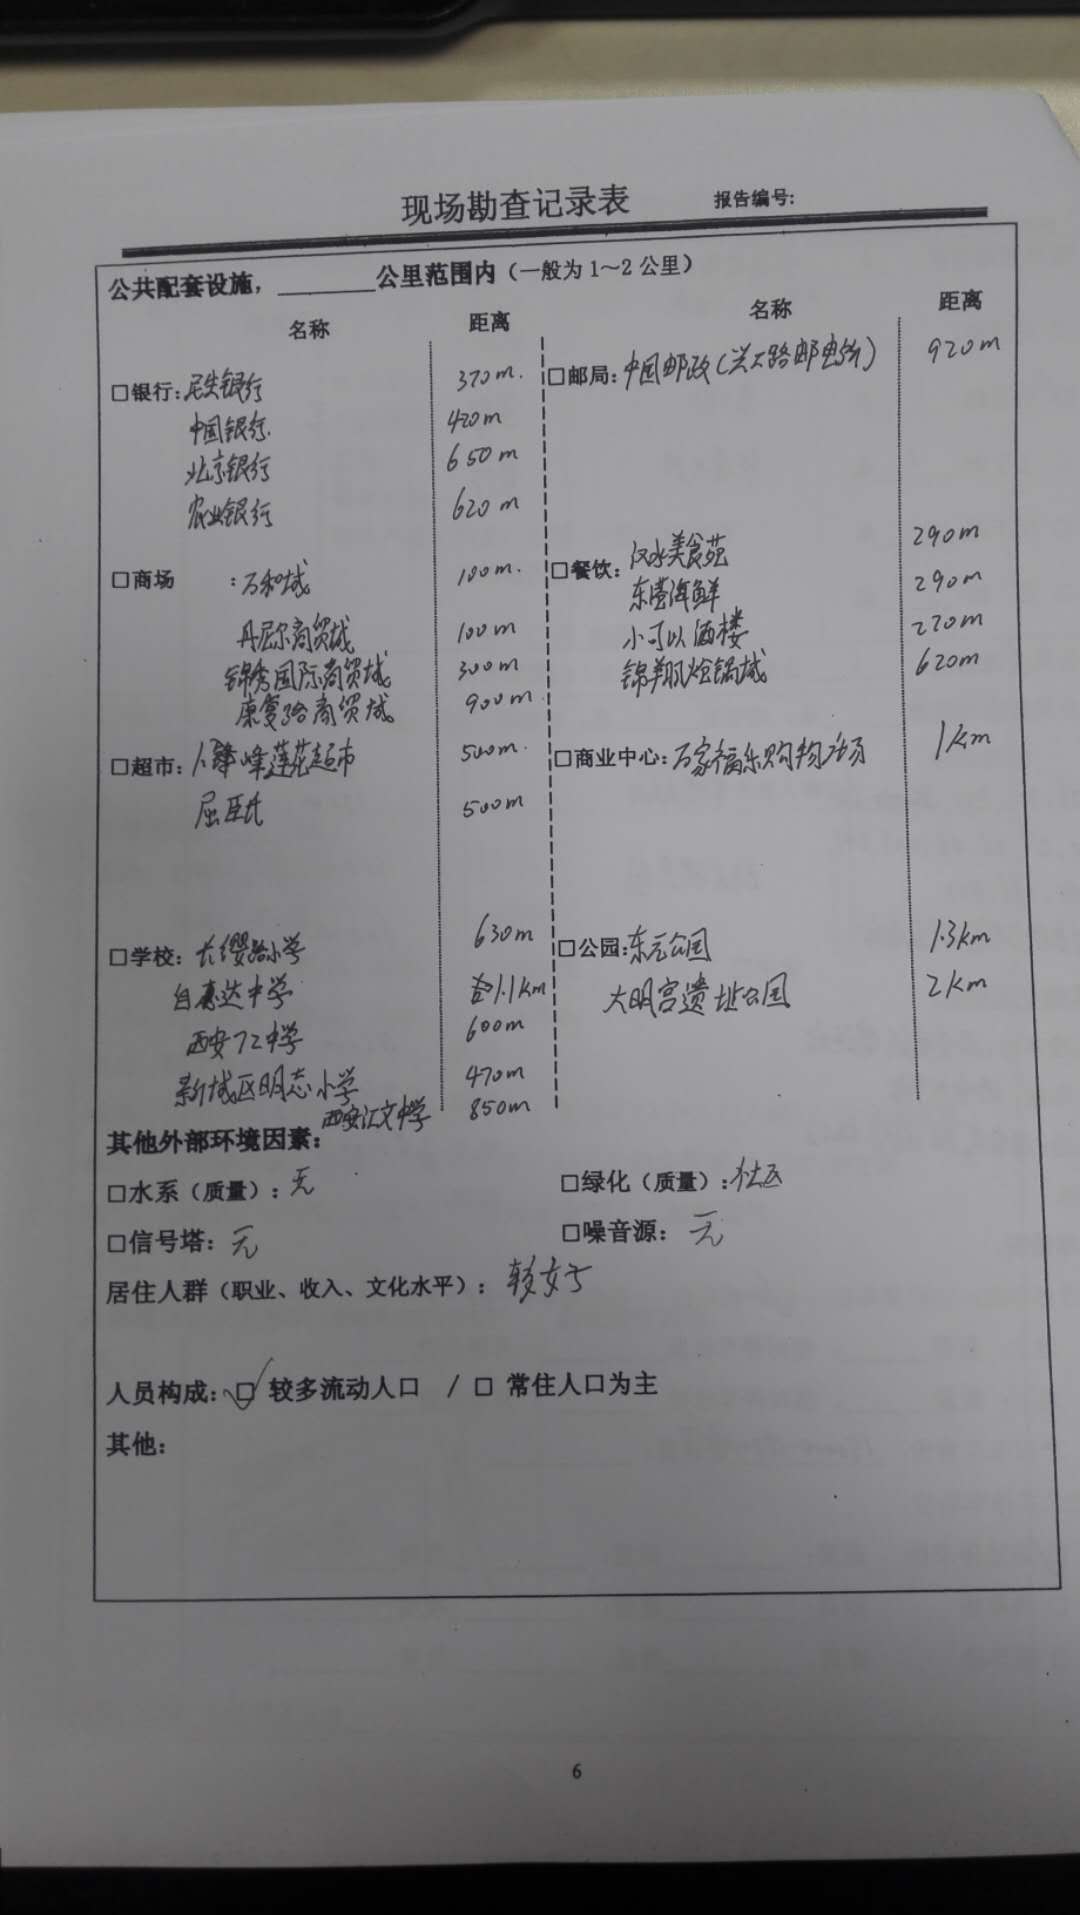 现场勘查记录表 报告编号:
公共配套设施，________公里范围内（一般为 1～2 公里）
名称 距离 名称 距离
□银行: 民生银行 370m. □邮局: 中国邮政(兴工路邮电所) 920m
中国银行. 420m
北京银行 650m
农业银行 620m
□商场 : 万和城 100m. □餐饮: 汉水美食苑 290m
丹尼尔商贸城 100m 东营海鲜 290m
锦绣国际商贸城 300m 小可以酒楼 270m
康复路商贸城 900m 锦翔火锅城 620m
□超市: 峰莲花超市 500m. □商业中心: 万家福乐购物广场 1km
屈臣氏 500m
□学校: 长缨路小学 630m □公园: 东元公园 1.3km
自惠达中学 1.1km 大明宫遗址公园 2km
西安72中学 600m
新城区明志小学 470m
西安汇文中学 850m
其他外部环境因素:
□水系（质量）: 无 □绿化（质量）: 社区
□信号塔: 无 □噪音源: 无
居住人群（职业、收入、文化水平）: 较好
人员构成: ☑ 较多流动人口 / □ 常住人口为主
其他:
6